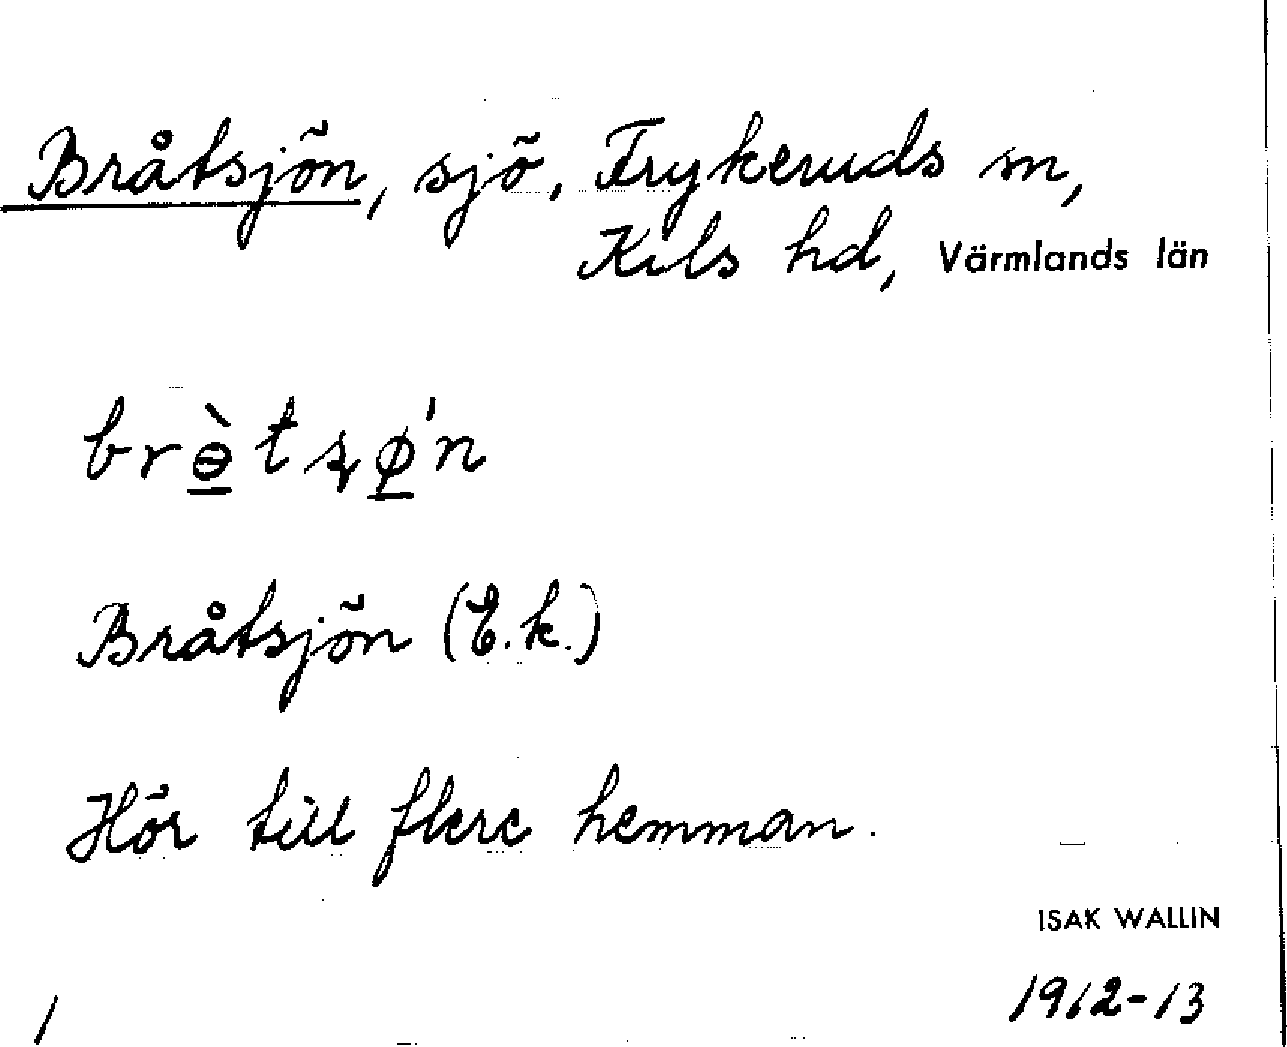 Bråtsjön, sjö, Frykeruds sn,
Kils hd, Värmlands län
brɵ̲̀tʂø̲'n
Bråtsjön (E.k.)
Hör till flere hemman.
ISAK WALLIN
1912-13
1